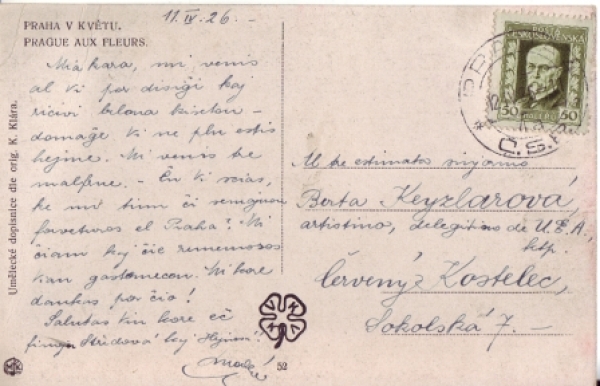 PRAHA V KVĚTU.
PRAGUE AUX FLEURS.
11. IV. 26. –
Mia kara, mi venis
al vi por diriĝi kaj
ricevi kison –
domaĝe vi ne plu estis
hejme. Mi venis tre
malfrue. – Ĉu vi scias,
ke mi tim ĉi semajnon
forveturos el Praha? Mi
ĉiam kaj ĉie rememoros
vian gastemecon. Mi kore
dankas por ĉio!
Salutas vin kore eĉ
finojn Stůdová kaj Hejno!
Umělecké dopisnice dle orig. K. Klára.
52
POŠTA
ČESKOSLOVENSKÁ
50 50
HALÉŘŮ
PRAHA
Č.S.R.
M tre estimata sinjorino
Berta Keyzlarová,
artistino, delegitino de U.E.A.,
ktp.
Červený Kostelec,
Sokolská 7. –